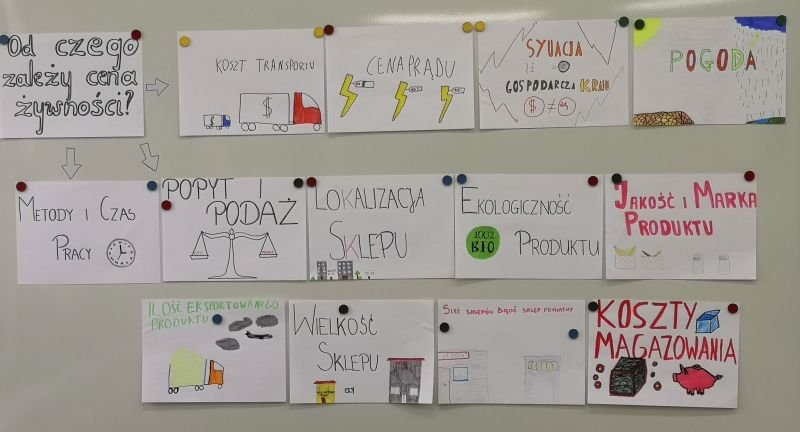 Od czego
zależy cena
żywności?
KOSZT TRANSPORTU
$
$
CENA PRĄDU
SYUACJA
GOSPODARCZA KRAJU
$ ≠
POGODA
METODY I CZAS
PRACY
POPYT I
PODAŻ
LOKALIZACJA
SKLEPU
EKOLOGICZNOŚĆ
100%
BIO
PRODUKTU
JAKOŚĆ I MARKA
PRODUKTU
ILOŚĆ EKSPORTOWANEGO
PRODUKTU
WIELKOŚĆ
SKLEPU
CZY
SIEĆ SKLEPÓW BĄDŹ SKLEP PRYWATNY
KOSZTY
MAGAZOWANIA